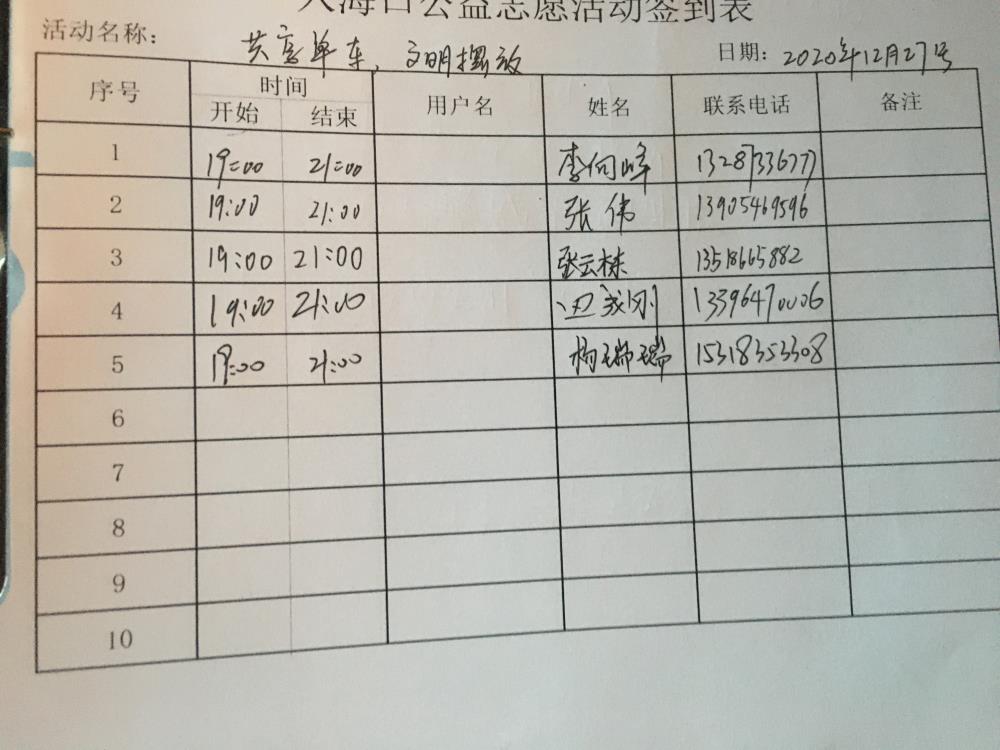 大海口公益志愿活动签到表
活动名称： 共享单车，文明摆放 日期：2020年12月27号
序号 时间 用户名 姓名 联系电话 备注
开始 结束
1 19:00 21:00 李向峰 13287336777
2 19:00 21:00 张伟 13905469596
3 19:00 21:00 张云栋 13518665882
4 19:00 21:00 边成刚 13396470006
5 19:00 21:00 杨瑞瑞 15318353308
6
7
8
9
10